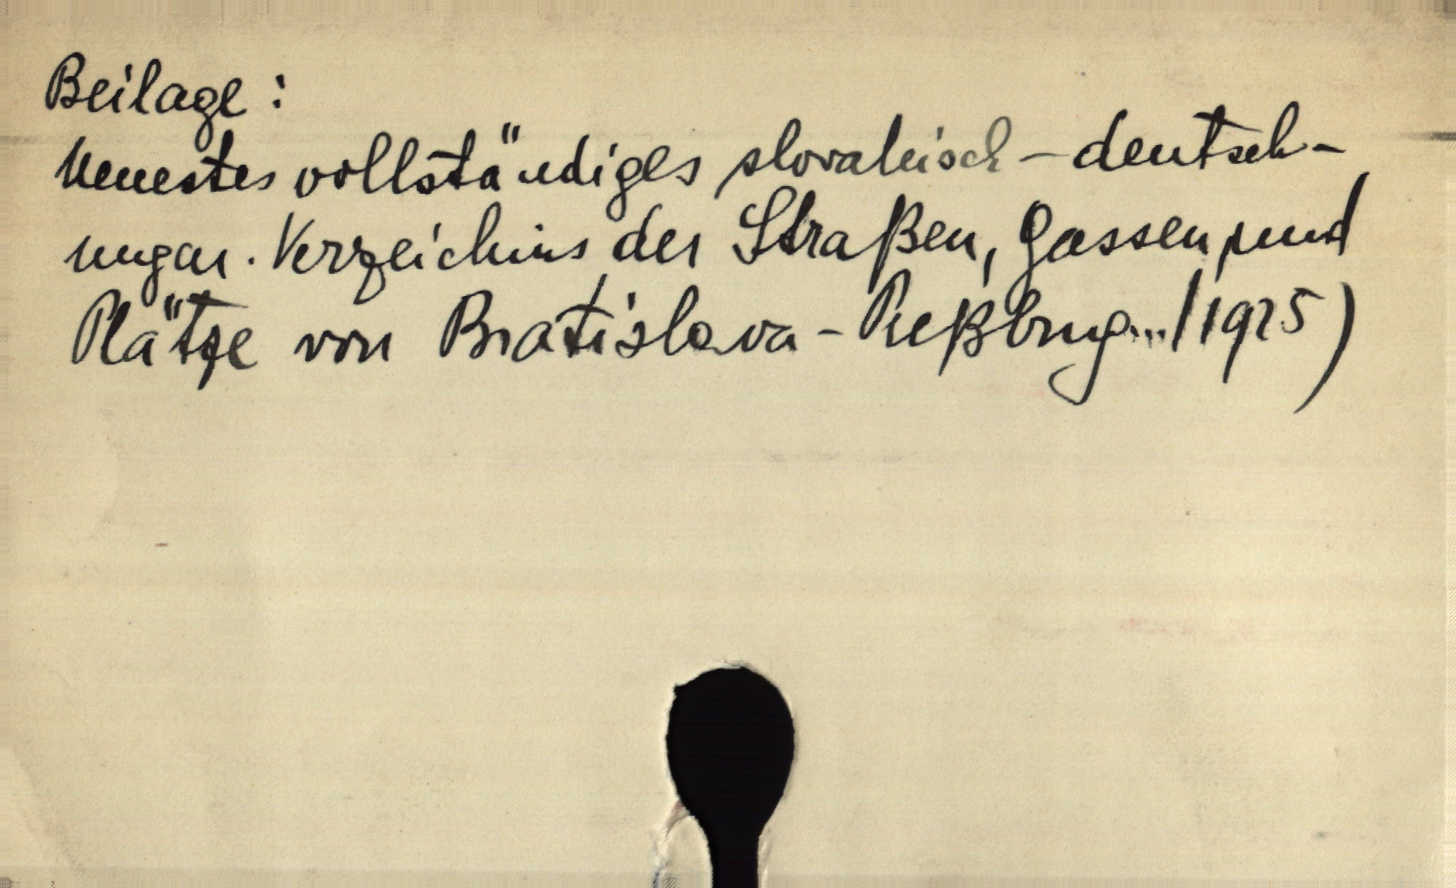 Beilage:
Neuestes vollständiges slovakisch-deutsch-
ungar. Verzeichnis der Straßen, Gassen und
Plätze von Bratislava-Preßburg... (1925)